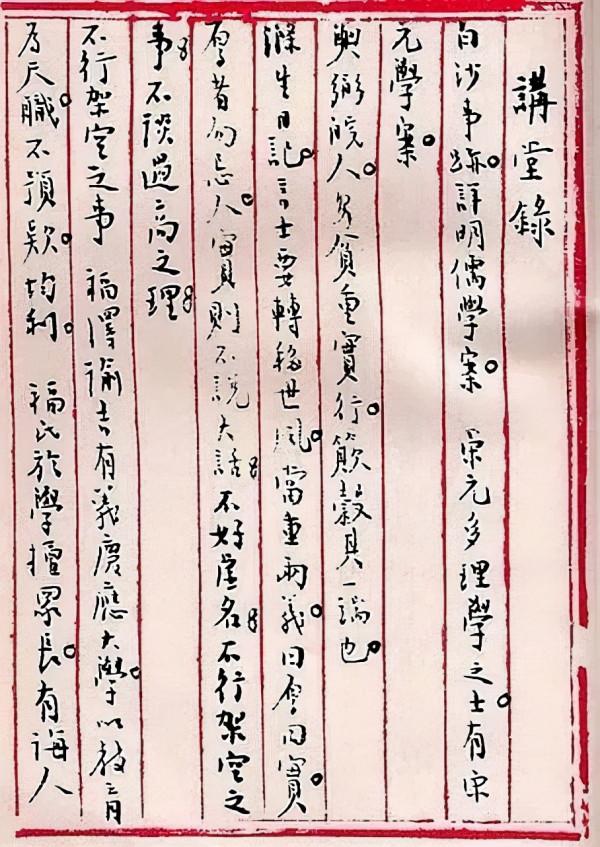 講堂錄
白沙事跡。詳明儒學案。 宋元多理學之士。有宋
元學案。
與弼皖人。貧重實行。簸穀其一端也。
滌生日記。言士要轉移世風。當重兩義。曰厚曰實。
厚者勿忌人。實則不說大話。不好虛名。不行架空之
事。不談過高之理。
不行架空之事 福澤諭吉有義慶應大學。以教育
為天職。不預款。均利。 福氏於學擅眾長。有誨人